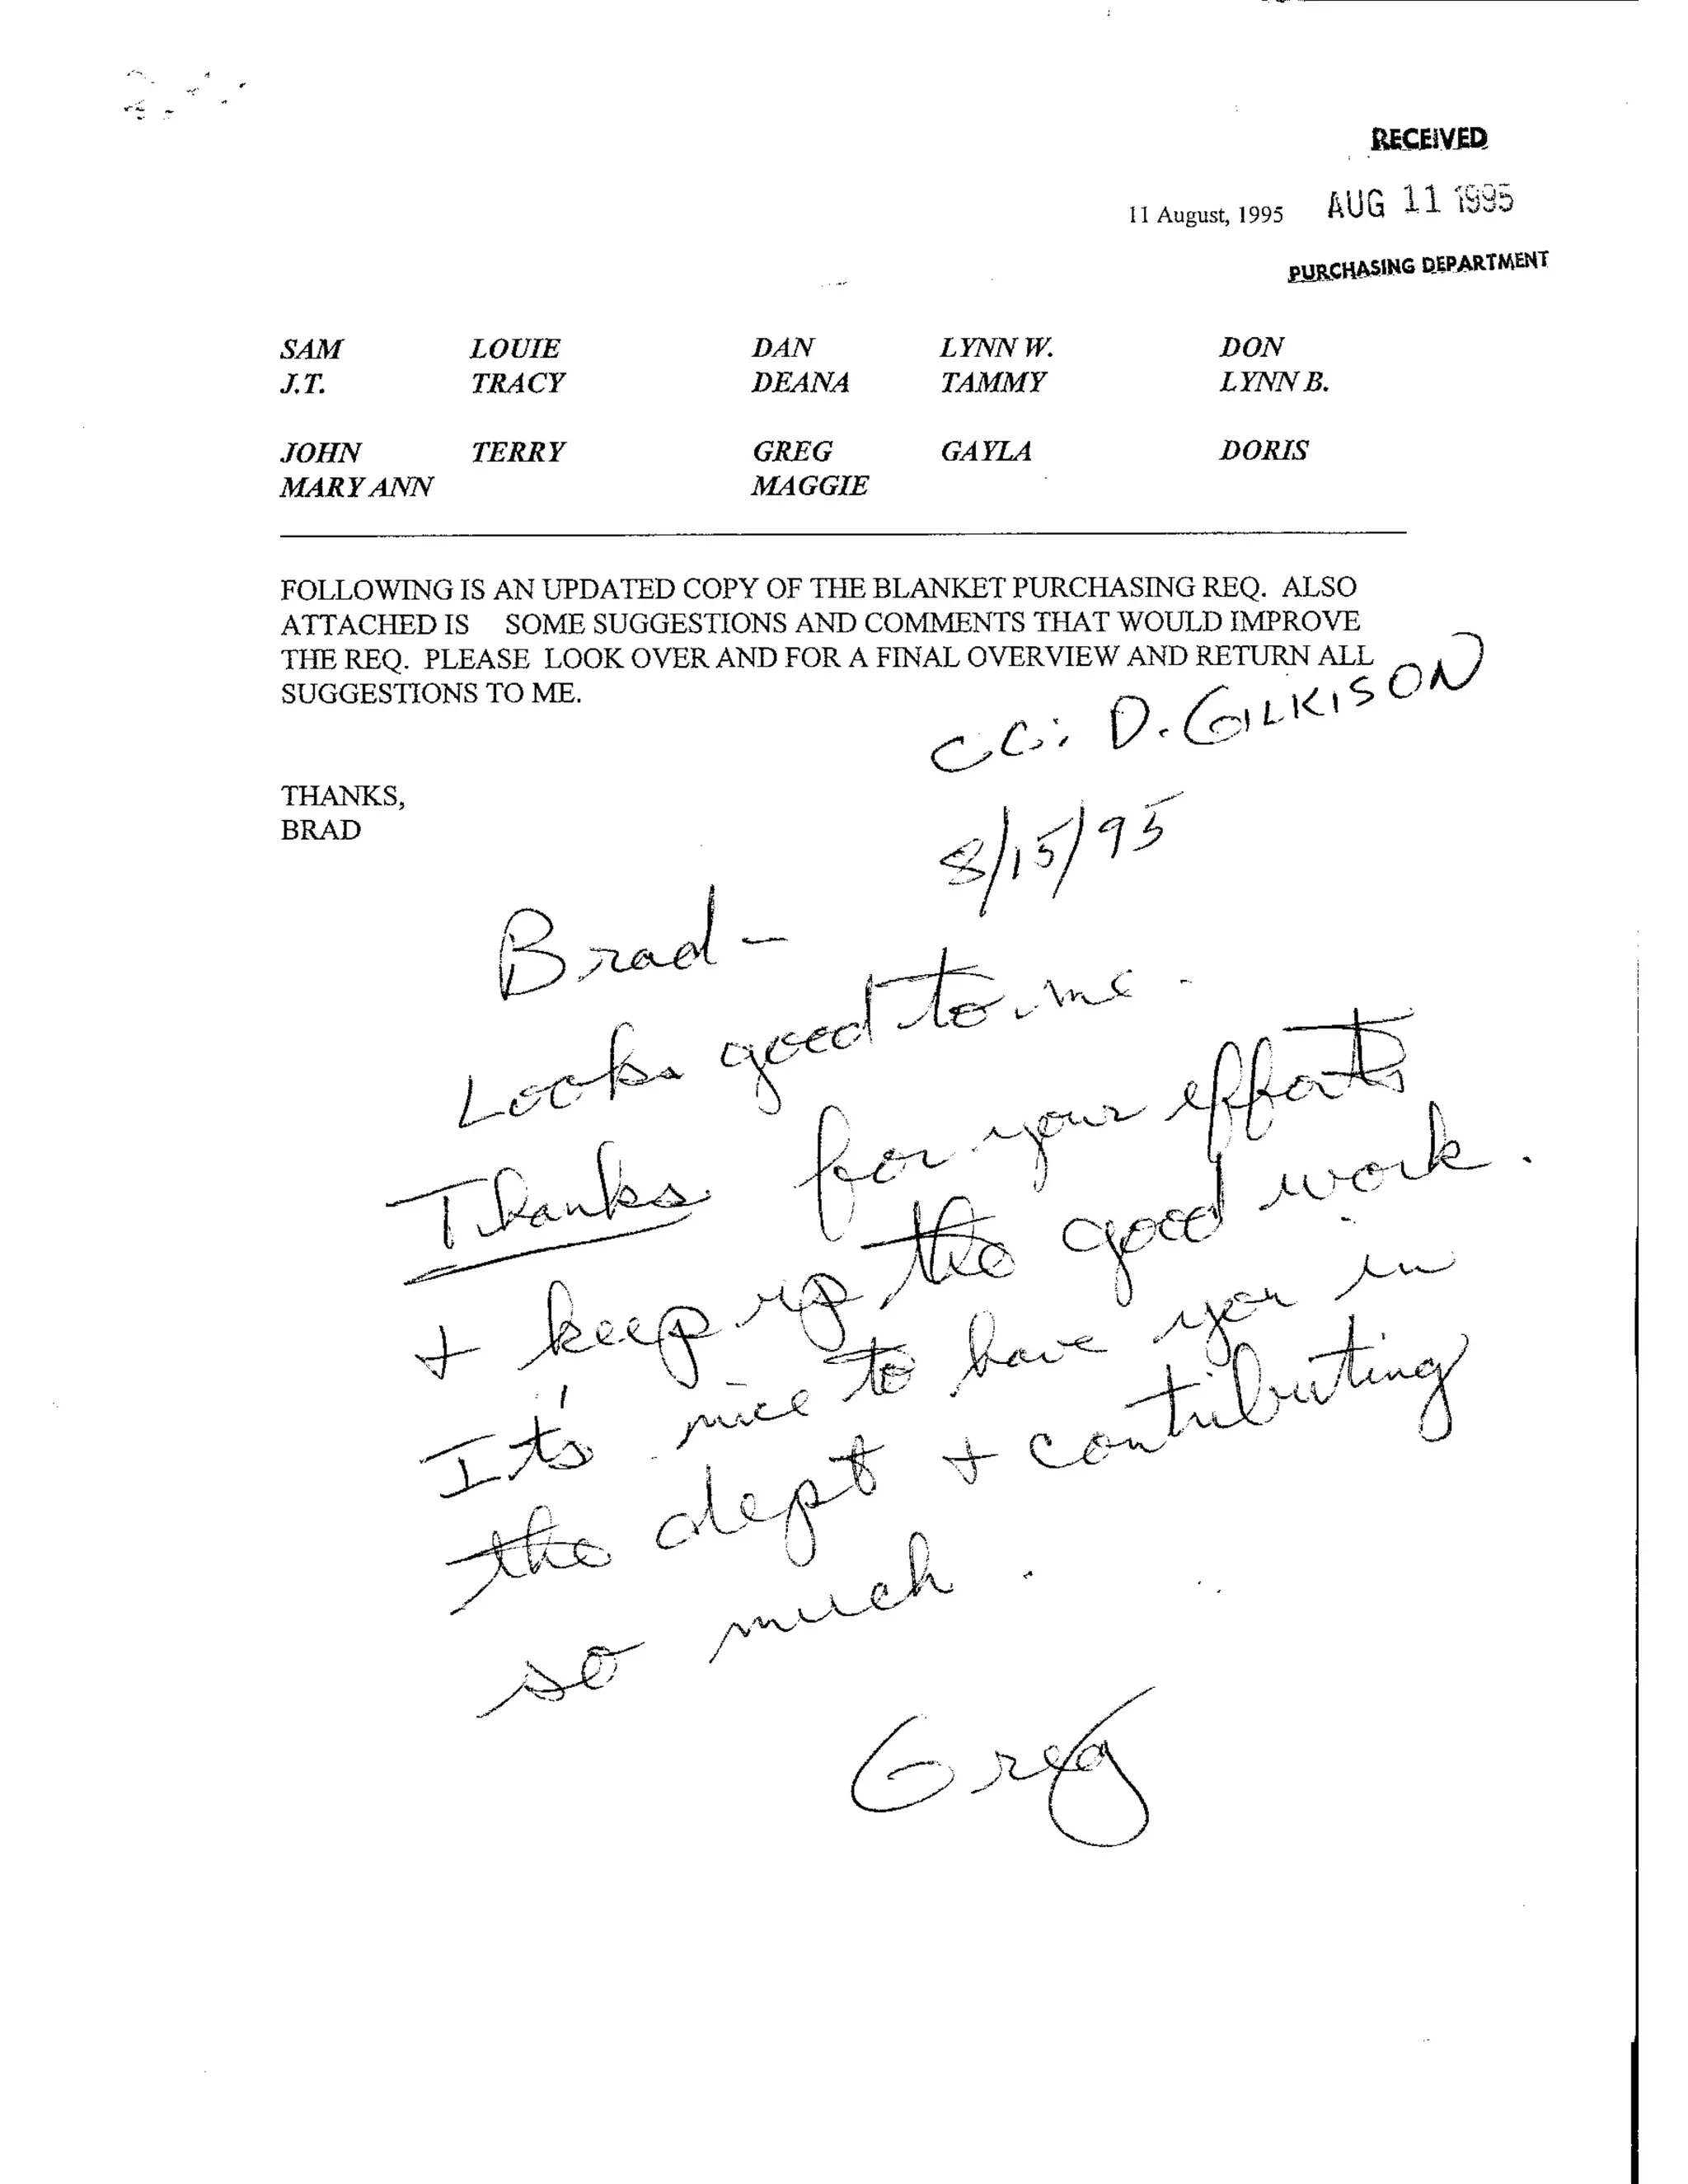 RECEIVED
11 August, 1995 AUG 11 1995
PURCHASING DEPARTMENT
SAM LOUIE DAN LYNN W. DON
J.T. TRACY DEANA TAMMY LYNN B.
JOHN TERRY GREG GAYLA DORIS
MARY ANN MAGGIE
FOLLOWING IS AN UPDATED COPY OF THE BLANKET PURCHASING REQ. ALSO
ATTACHED IS SOME SUGGESTIONS AND COMMENTS THAT WOULD IMPROVE
THE REQ. PLEASE LOOK OVER AND FOR A FINAL OVERVIEW AND RETURN ALL
SUGGESTIONS TO ME.
CC: D. GILKISON
THANKS,
BRAD
8/15/95
Brad-
Looks good to me.
Thanks for your efforts
+ keep up the good work.
It's nice to have you in
the dept + contributing
so much.
Greg